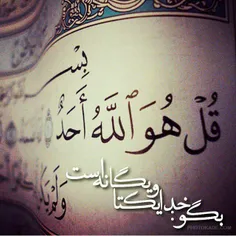 بِسْ
قُلْ هُوَ ٱللَّهُ أَحَدٌ
وَلَمْ
بگو: خدا یکتا و یگانه است